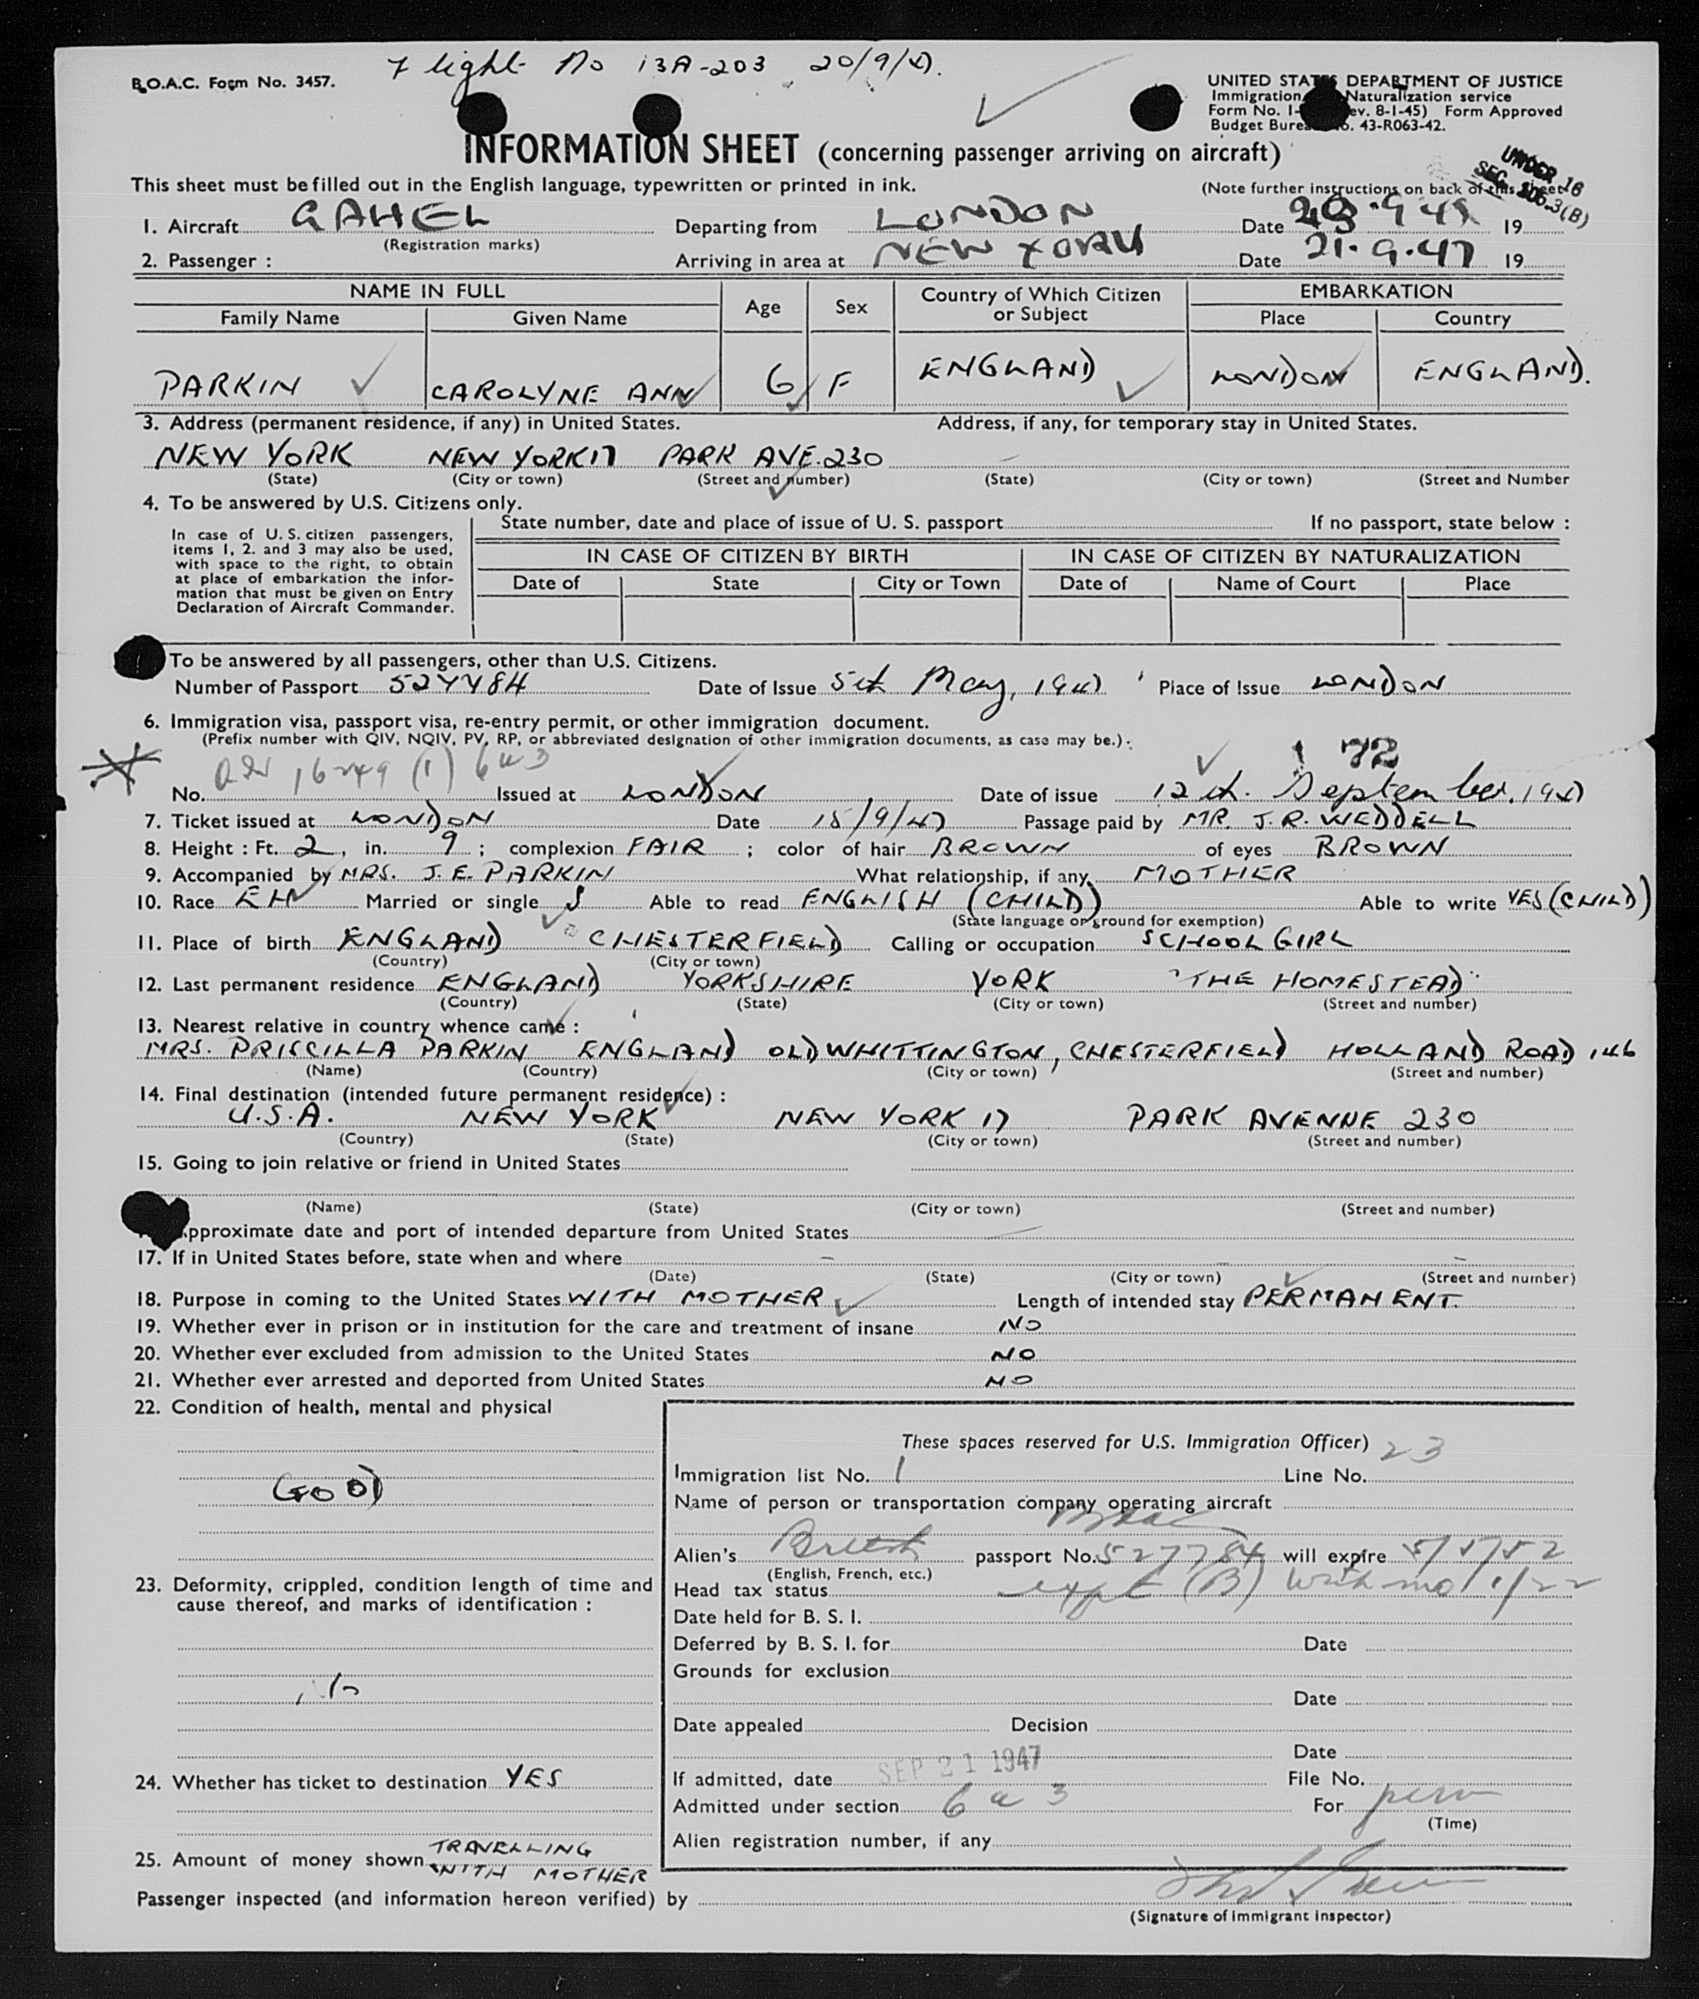 Flight No 13A-203 20/9/47.
B.O.A.C. Form No. 3457.
UNITED STATES DEPARTMENT OF JUSTICE
Immigration Naturalization service
Form No. I- ev. 8-1-45) Form Approved
Budget Bureau No. 43-R063-42.
INFORMATION SHEET (concerning passenger arriving on aircraft)
UNDER 16
SEC. 306.3(B)
This sheet must be filled out in the English language, typewritten or printed in ink.
(Note further instructions on back of this sheet)
1. Aircraft GAHEL Departing from LONDON Date 20.9.47 19
(Registration marks)
2. Passenger : Arriving in area at NEW YORK Date 21.9.47 19
NAME IN FULL Age Sex Country of Which Citizen or Subject EMBARKATION
Family Name Given Name Place Country
PARKIN CAROLYNE ANN 6 F ENGLAND LONDON ENGLAND.
3. Address (permanent residence, if any) in United States. Address, if any, for temporary stay in United States.
NEW YORK NEW YORK 17 PARK AVE. 230
(State) (City or town) (Street and number) (State) (City or town) (Street and Number
4. To be answered by U.S. Citizens only.
State number, date and place of issue of U. S. passport If no passport, state below :
In case of U. S. citizen passengers,
items 1, 2. and 3 may also be used,
with space to the right, to obtain
at place of embarkation the infor-
mation that must be given on Entry
Declaration of Aircraft Commander.
IN CASE OF CITIZEN BY BIRTH IN CASE OF CITIZEN BY NATURALIZATION
Date of State City or Town Date of Name of Court Place
To be answered by all passengers, other than U.S. Citizens.
Number of Passport 527784 Date of Issue 5th May, 1947 Place of Issue LONDON
6. Immigration visa, passport visa, re-entry permit, or other immigration document.
(Prefix number with QIV, NQIV, PV, RP, or abbreviated designation of other immigration documents, as case may be.)
72
No. 16249 (1) 6a3 Issued at LONDON Date of issue 12th. September, 1947
7. Ticket issued at LONDON Date 15/9/47 Passage paid by MR. J.R. WEDDELL
8. Height : Ft. 2, in. 9 ; complexion FAIR ; color of hair BROWN of eyes BROWN
9. Accompanied by MRS. J.E. PARKIN What relationship, if any, MOTHER
10. Race EN Married or single S Able to read ENGLISH (CHILD) Able to write YES (CHILD)
(State language or ground for exemption)
11. Place of birth ENGLAND CHESTERFIELD Calling or occupation SCHOOL GIRL
(Country) (City or town)
12. Last permanent residence ENGLAND YORKSHIRE YORK "THE HOMESTEAD"
(Country) (State) (City or town) (Street and number)
13. Nearest relative in country whence came :
MRS. PRISCILLA PARKIN ENGLAND OLD WHITTINGTON, CHESTERFIELD HOLLAND ROAD 146
(Name) (Country) (City or town) (Street and number)
14. Final destination (intended future permanent residence) :
U.S.A. NEW YORK NEW YORK 17 PARK AVENUE 230
(Country) (State) (City or town) (Street and number)
15. Going to join relative or friend in United States
(Name) (State) (City or town) (Street and number)
Approximate date and port of intended departure from United States
17. If in United States before, state when and where
(Date) (State) (City or town) (Street and number)
18. Purpose in coming to the United States WITH MOTHER Length of intended stay PERMANENT.
19. Whether ever in prison or in institution for the care and treatment of insane NO
20. Whether ever excluded from admission to the United States NO
21. Whether ever arrested and deported from United States NO
22. Condition of health, mental and physical
GOOD
23. Deformity, crippled, condition length of time and
cause thereof, and marks of identification :
No
24. Whether has ticket to destination YES
25. Amount of money shown TRAVELLING
WITH MOTHER
These spaces reserved for U.S. Immigration Officer)
Immigration list No. 1 Line No. 23
Name of person or transportation company operating aircraft
BOAC
Alien's British passport No. 527784 will expire 5/5/52
(English, French, etc.)
Head tax status expt (B) with mo 1/22
Date held for B. S. I.
Deferred by B. S. I. for Date
Grounds for exclusion
Date
Date appealed Decision
Date
If admitted, date SEP 21 1947 File No.
Admitted under section 6a3 For perm
(Time)
Alien registration number, if any
Passenger inspected (and information hereon verified) by
(Signature of immigrant inspector)